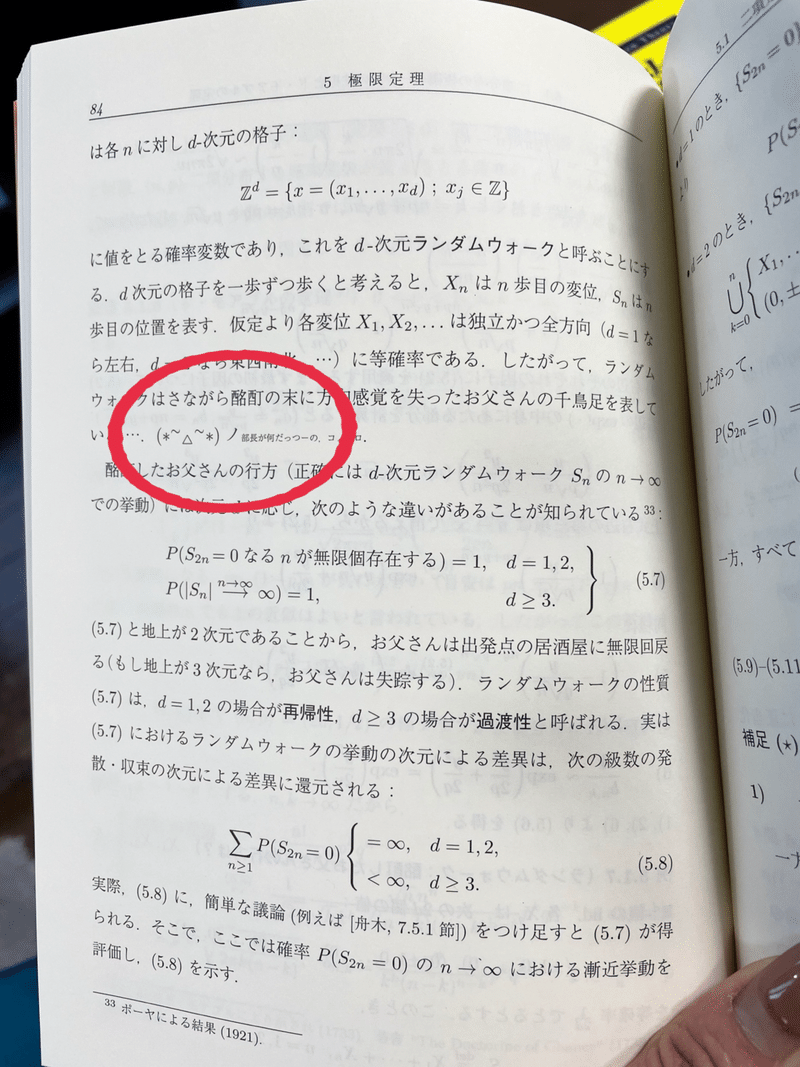 84
5 極限定理
は各 n に対し d-次元の格子：
ℤ^d = {x = (x_1, . . . , x_d) ; x_j ∈ ℤ}
に値をとる確率変数であり，これを d-次元ランダムウォークと呼ぶことにす
る．d 次元の格子を一歩ずつ歩くと考えると，X_n は n 歩目の変位，S_n は n
歩目の位置を表す．仮定より各変位 X_1, X_2, . . . は独立かつ全方向（d = 1 な
ら左右，d = なら東西南北，…）に等確率である．したがって，ランダム
ウォークはさながら酩酊の末に方向感覚を失ったお父さんの千鳥足を表して
い …．(*~△~*) ノ 部長が何だっつーの，コ ロ．
酩酊したお父さんの行方（正確には d-次元ランダムウォーク S_n の n → ∞
での挙動）には次元 d に応じ，次のような違いがあることが知られている ^33：
P(S_{2n} = 0 なる n が無限個存在する) = 1, d = 1, 2,
P(|S_n| \overset{n→∞}{⟶} ∞) = 1, d ≥ 3.
(5.7)
(5.7) と地上が 2 次元であることから，お父さんは出発点の居酒屋に無限回戻
る（もし地上が 3 次元なら，お父さんは失踪する）．ランダムウォークの性質
(5.7) は，d = 1, 2 の場合が再帰性，d ≥ 3 の場合が過渡性と呼ばれる．実は
(5.7) におけるランダムウォークの挙動の次元による差異は，次の級数の発
散・収束の次元による差異に還元される：
∑_{n≥1} P(S_{2n} = 0) { = ∞, d = 1, 2,
< ∞, d ≥ 3.
(5.8)
実際，(5.8) に，簡単な議論 (例えば [舟木, 7.5.1 節]) をつけ足すと (5.7) が得
られる．そこで，ここでは確率 P(S_{2n} = 0) の n → ∞ における漸近挙動を
評価し，(5.8) を示す．
^33 ポーヤによる結果 (1921).
5.1 二項
•d = 1 のとき，{S_{2n} = 0}
P(S
より
•d = 2 のとき，{S_{2n}
⋃_{k=0}^{n} { X_1,
(0, ±
したがって，
P(S_{2n} = 0) =
一方，すべて
(5.9)–(5.11
補足 (⋆)
1)
一方